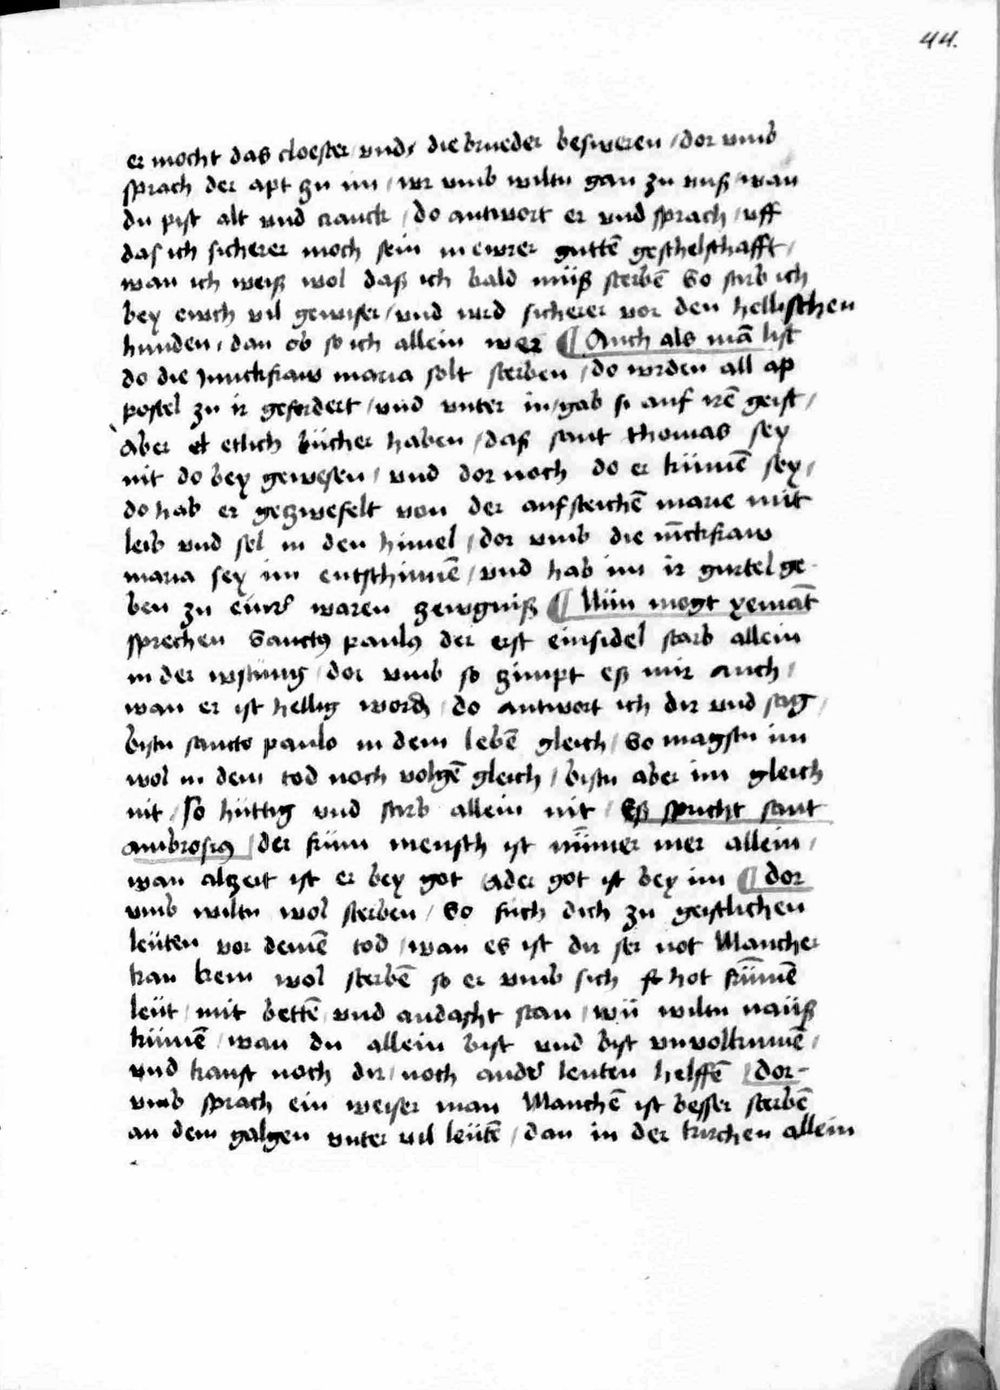 44.
er mocht das closter vnd die brueder besweren / dor vmb
sprach der apt zu im / wor vmb wiltu gan zu vnß / wan
du pist alt vnd cranck / do antwort er vnd sprach / vff
das ich sicherer moch sein in ewrer gutte͂ geschelschafft /
wan ich weiß wol daß ich bald müß sterbe͂ So stirb ich
bey ewch vil gewiser / vnd wird sicherer vor den hellischen
hunden / dan ob so ich allein wer ¶ Auch als ma͂ list
do die junckfraw maria solt sterben / do wrden all ap
postel zu ir gefordert / vnd vnter in / gab si auf ire͂ geist /
aber et etlich bücher haben / daß sant thomas sey
nit do bey gewesen / vnd dor noch do er küme͂ sey /
do hab er gezwefelt von der aufsteiche͂ marie mit
leib vnd sel in den himel / dor vmb die iu͂ckfraw
maria sey im entschinne͂ / vnd hab im ir gurtel ge-
ben zu einer waren zewgniß ¶ Nün mogt yema͂t
sprechen Sanctus paulus der erst einsidel starb allein
in der wstung / dor vmb so zimpt eß mir auch /
wan er ist hellig word͂ / do antwort ich dir vnd sag /
bistu sancto paulo in dem lebe͂ gleich / So magstu im
wol in dem tod noch volge͂ gleich / bistu aber im gleich
nit / So hüttig vnd stirb allein nit / Eß spricht sant
ambrosius / der frum mensch ist nu͂mer mer allein /
wan alzeit ist er bey got oder got ist bey im ¶ dor
vmb wiltu wol sterben / So füch dich zu geistlichen
leüten vor deine͂ tod / wan es ist dir ser not Mancher
kan kein wol sterbe͂ so er vmb sich hot früme͂
leüt / mit bette͂ vnd andacht stan / wü wiltu nauß
küme͂ / wan du allein bist vnd bist vnvolkume͂ /
vnd kanst noch dir / noch ander leuten helffe͂ / dor-
vmb sprach ein weiser man Manche͂ ist besser sterbe͂
an dem galgen vnter vil leüte͂ / dan in der kirchen allein